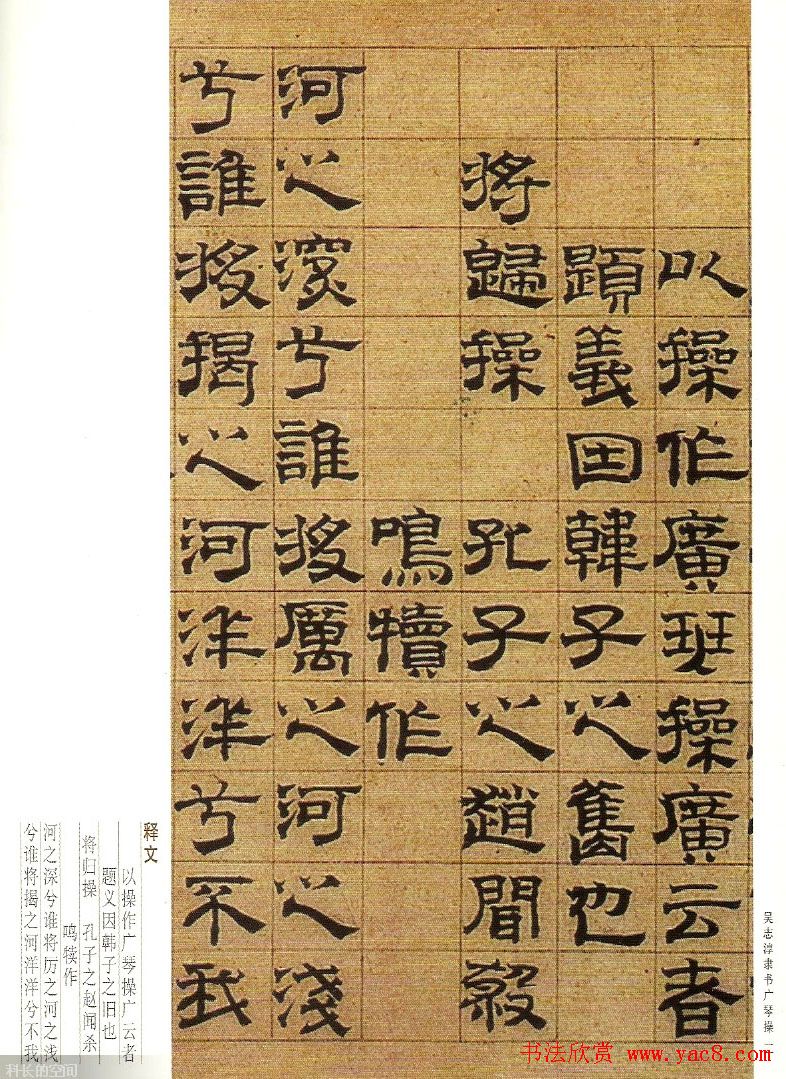 以操作廣琴操廣云者
題義因韓子之舊也
將歸操 孔子之趙聞殺
鳴犢作
河之深兮誰將厲之河之淺
兮誰將揭之河洋洋兮不我
吴志淳隶书广琴操 一
释文
以操作广琴操广云者
题义因韩子之旧也
将归操 孔子之赵闻杀
鸣犊作
河之深兮谁将历之河之浅
兮谁将揭之河洋洋兮不我
科长的空间
书法欣赏 www.yac8.com